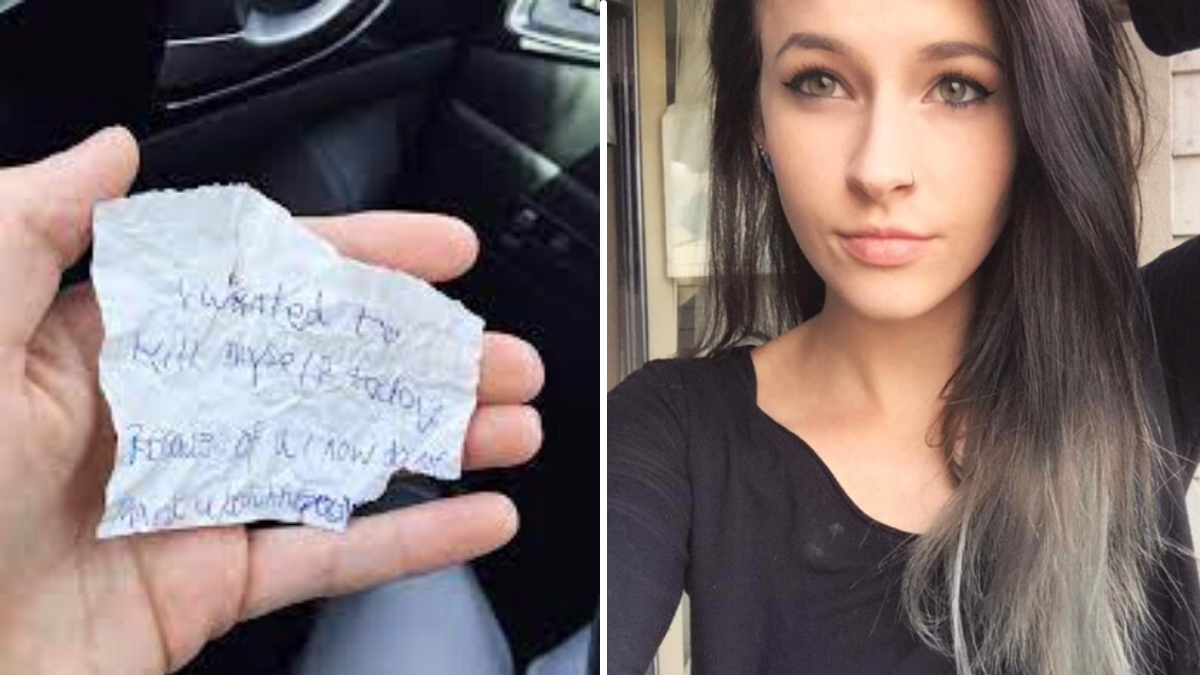 I wanted to
kill myself today
of u i now
not